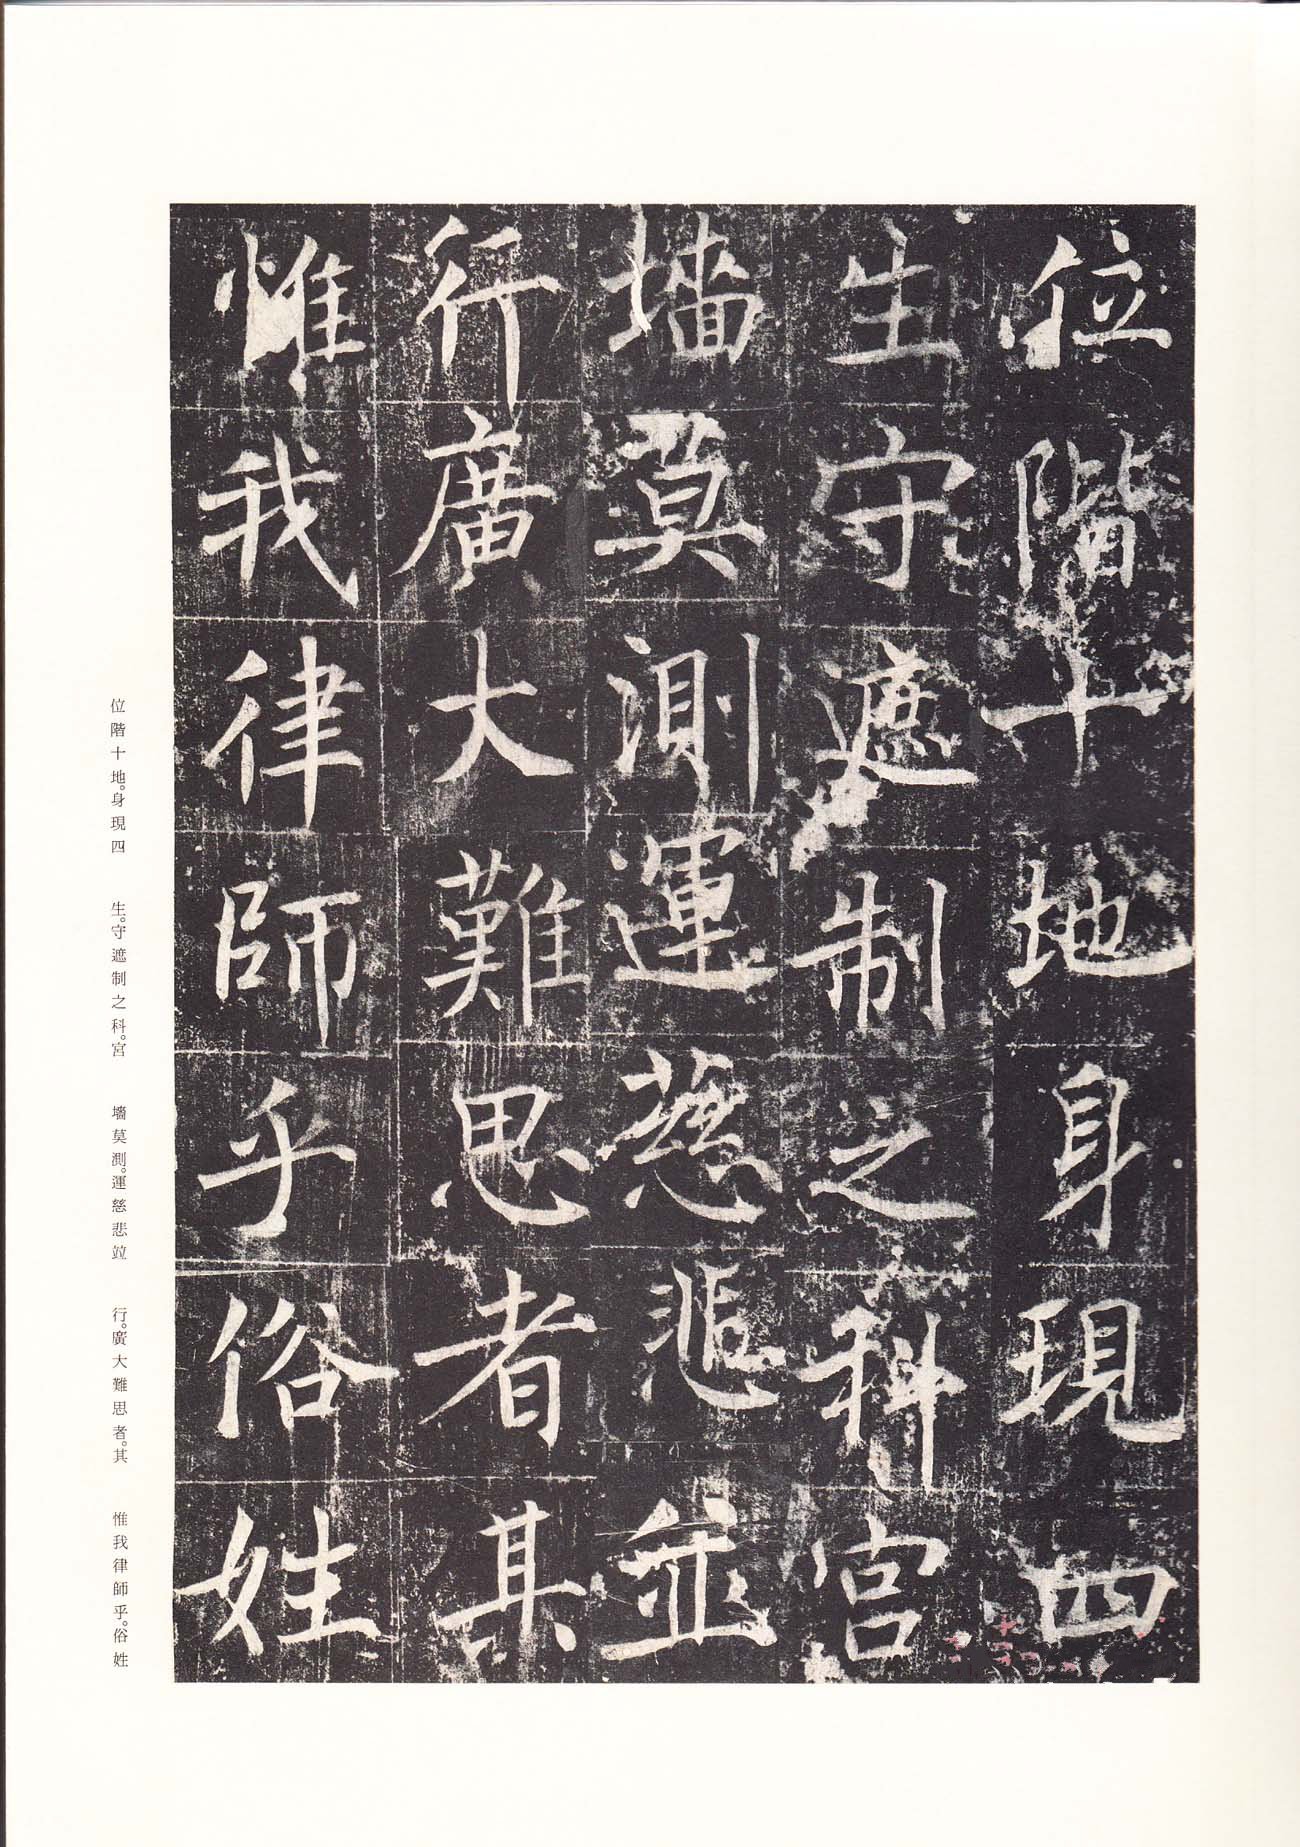 位階十地身現四
生守遮制之科宮
墻莫測運慈悲並
行廣大難思者其
惟我律師乎俗姓
位階十地。身現四　生。守遮制之科。宮　墻莫測。運慈悲竝　行。廣大難思者。其　惟我律師乎。俗姓